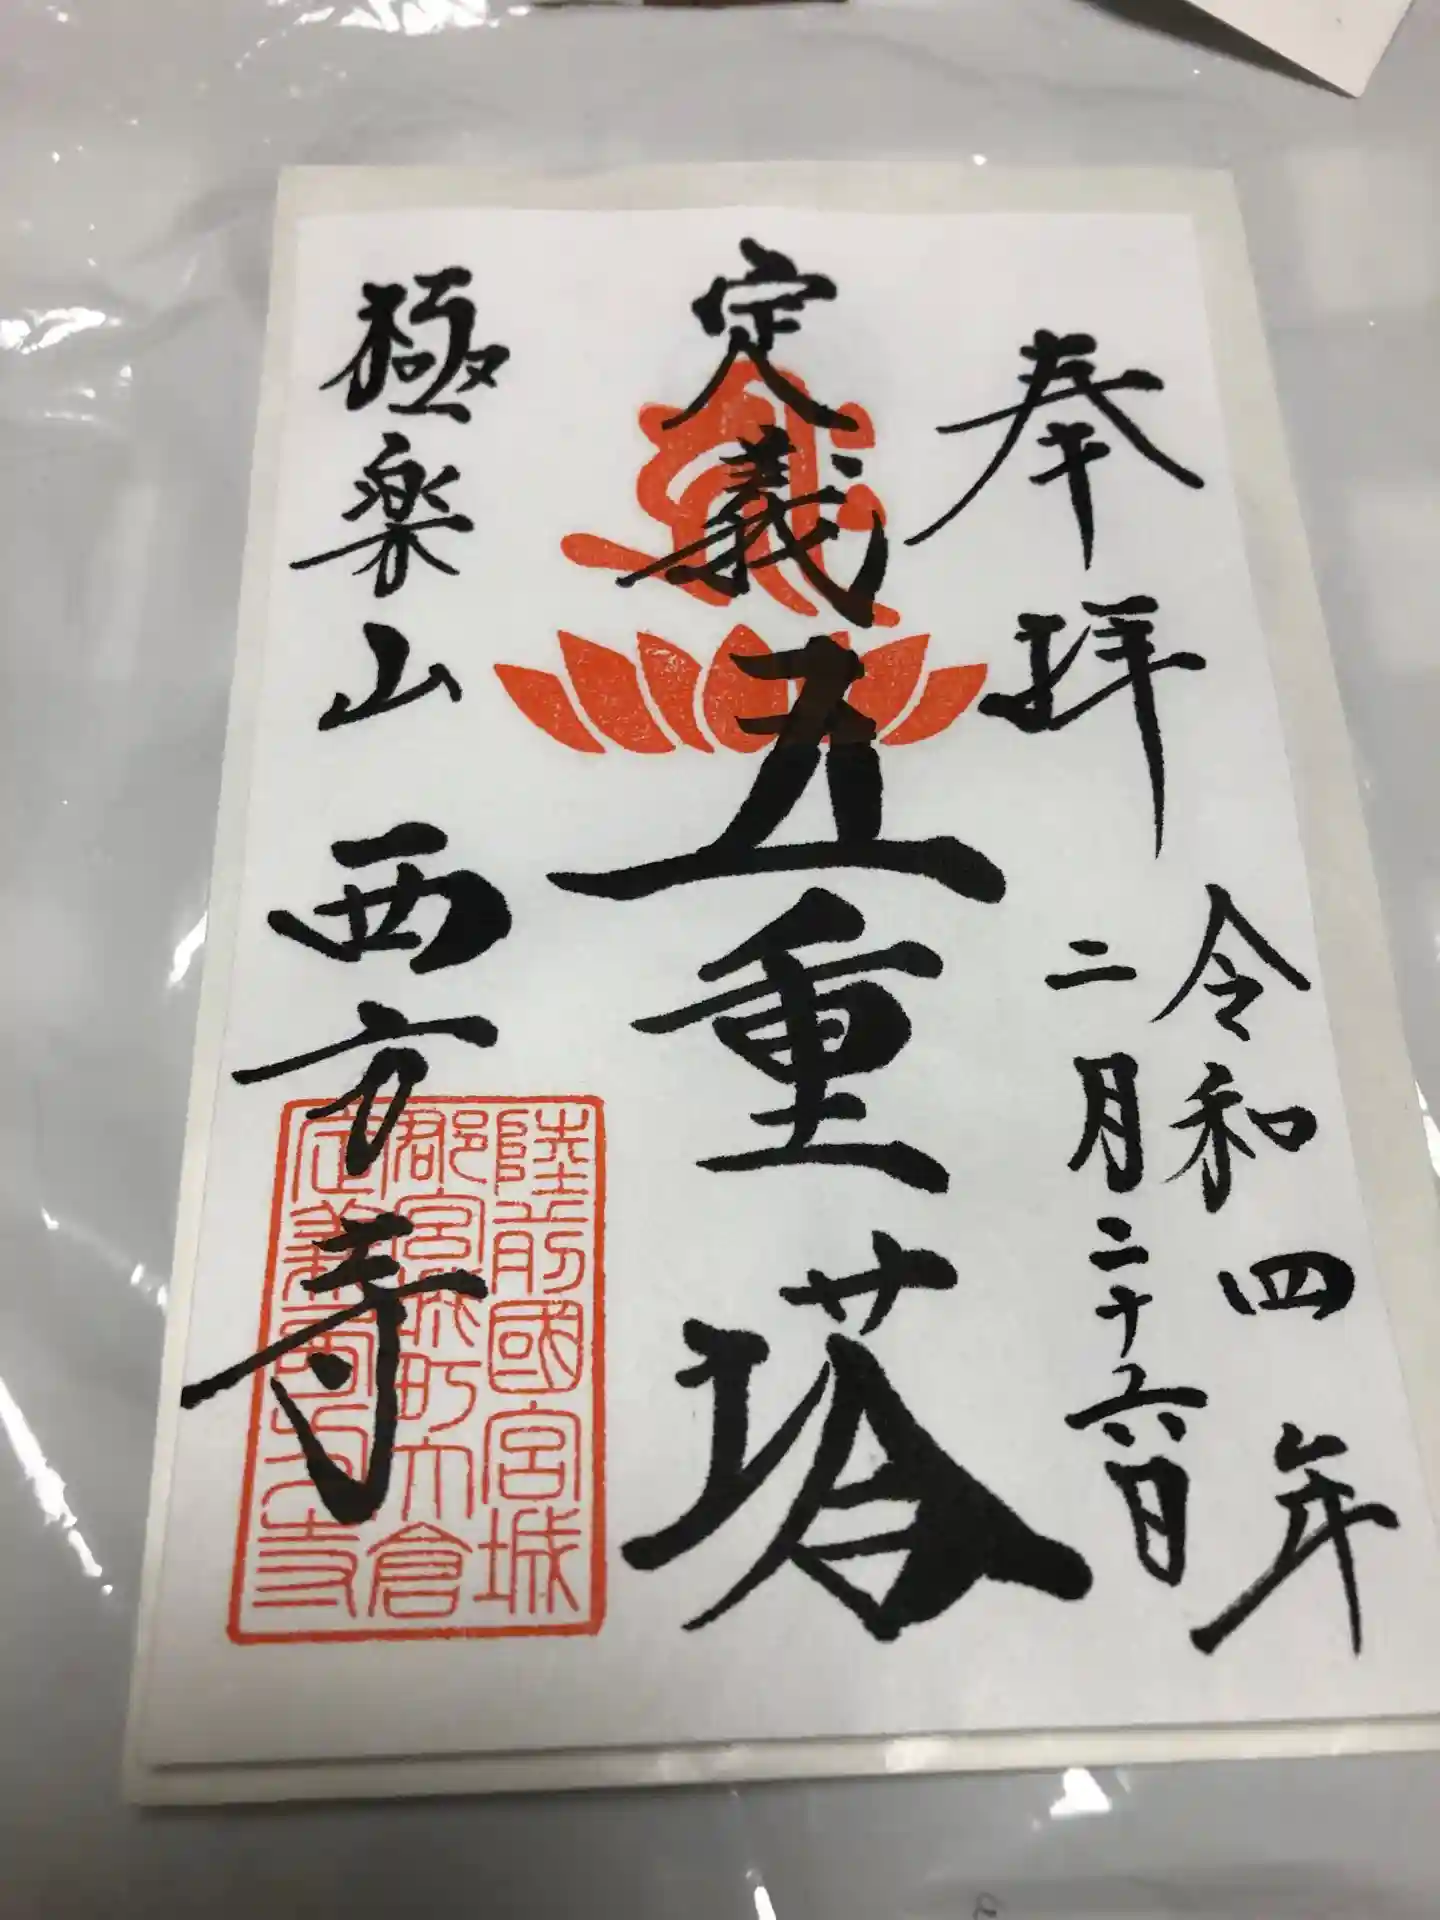 奉拝
令和四年
二月二十六日
定義五重塔
極楽山 西方寺
陸前國宮城
郡宮城町大倉
定義西方寺